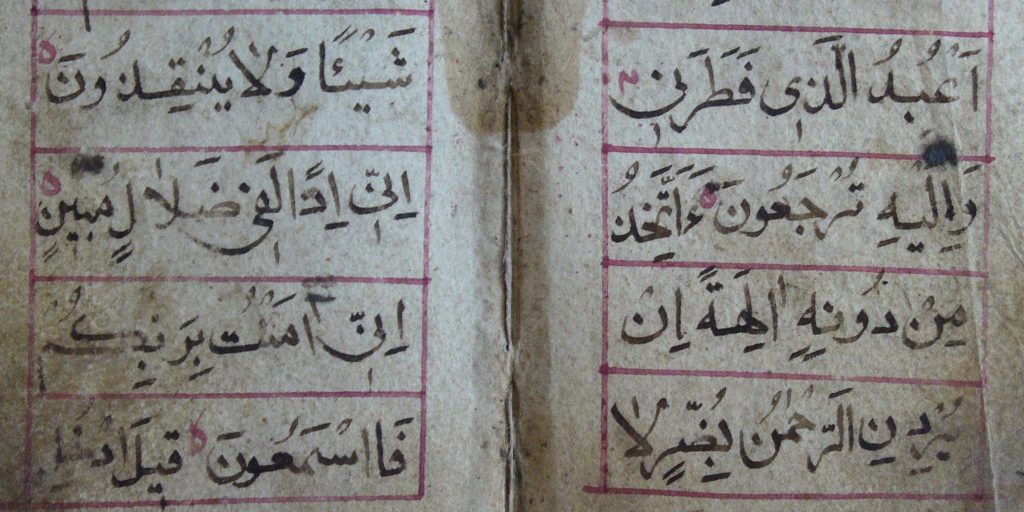 اَعْبُدُ الَّذِى فَطَرَنِى
وَاِلَيْهِ تُرْجَعُونَ ءَاَتَّخِذُ
مِنْ دُونِهِ اٰلِهَةً اِنْ
يُرِدْنِ الرَّحْمٰنُ بِضُرٍّ لَا
شَيْئًا وَلَا يُنْقِذُونَ
اِنِّى اِذًا لَفِى ضَلَالٍ مُبِينٍ
اِنِّى اٰمَنْتُ بِرَبِّكُمْ
فَااسْمَعُونَ قِيلَ ادْخُلِ